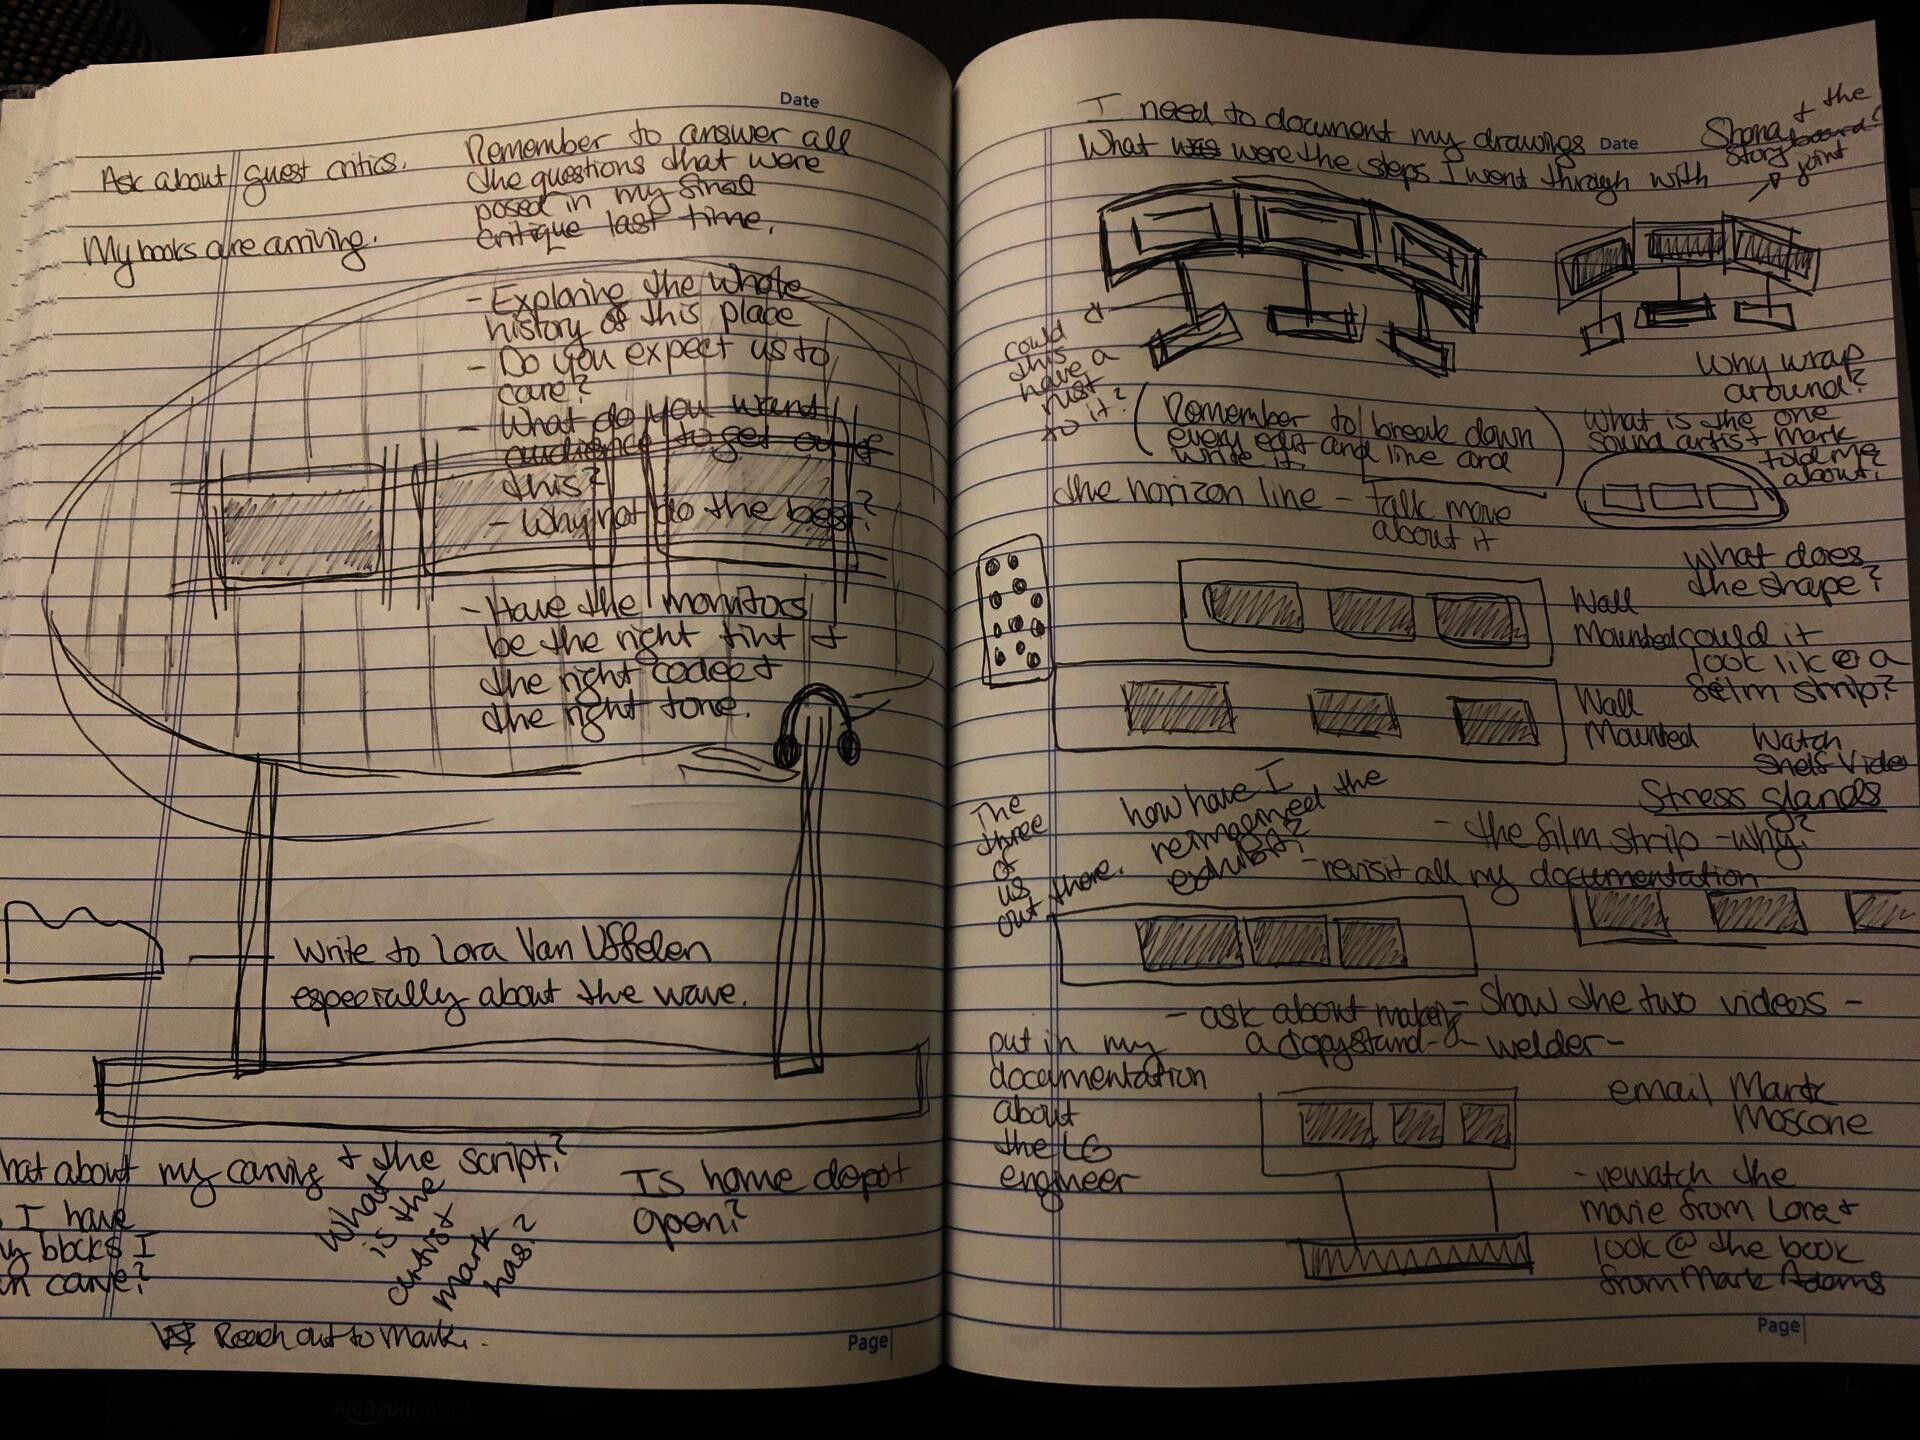 Date
Ask about guest critics.
My books are arriving.
Remember to answer all
the questions that were
posed in my final
critique last time.
- Exploring the whole
history of this place
- Do you expect us to
care?
- What do you want
audience to get out of
this?
- Why not do the best?
- Have the monitors
be the right tint &
the right codec &
the right tone.
Write to Lora Van Uffelen
especially about the wave.
hat about my carving & the script?
I have
blocks I
carve?
What
is the
artist
mark
has?
Is home depot
open?
Reach out to Mark.
Page
I need to document my drawings
Date
What was were the steps I went through with
Shona & the
story board?
joint
could
this
have a
rust
to it?
Why wrap
around?
(Remember to break down
every edit and line and
write it.)
What is the one
sound artist Mark
told me
about?
the horizon line - talk more
about it
What does
the shape?
Wall
Mounted
could it
look like a
film strip?
Wall
Mounted
Watch
Shelf Video
Stress glands
The
three
of
us
out there.
how have I
reimagined the
exhibit?
- the film strip - why?
- revisit all my documentation
- ask about making
a copystand - a welder -
- Show the two videos -
put in my
documentation
about
the LG
engineer
email Mark
Moscone
- rewatch the
movie from Lora &
look @ the book
from Mark Adams
Page
amazonbasics